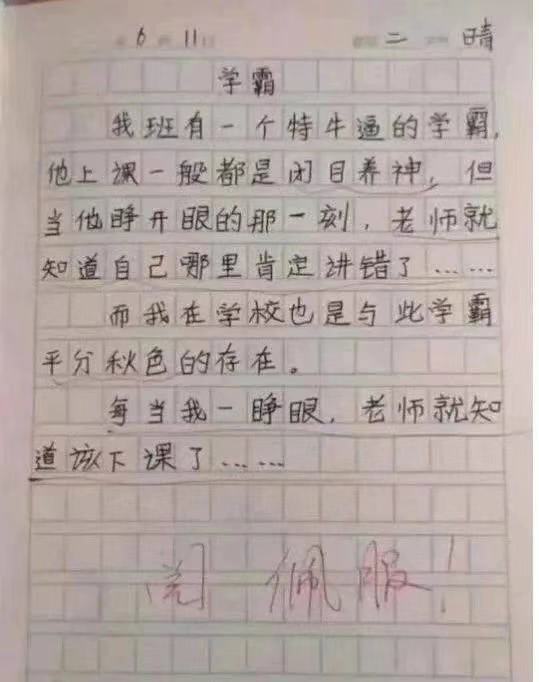 6 11日 二 晴
学霸
我班有一个特牛逼的学霸,
他上课一般都是闭目养神,但
当他睁开眼的那一刻,老师就
知道自己哪里肯定讲错了……
而我在学校也是与此学霸
平分秋色的存在。
每当我一睁眼,老师就知
道该下课了……
阅 佩服!